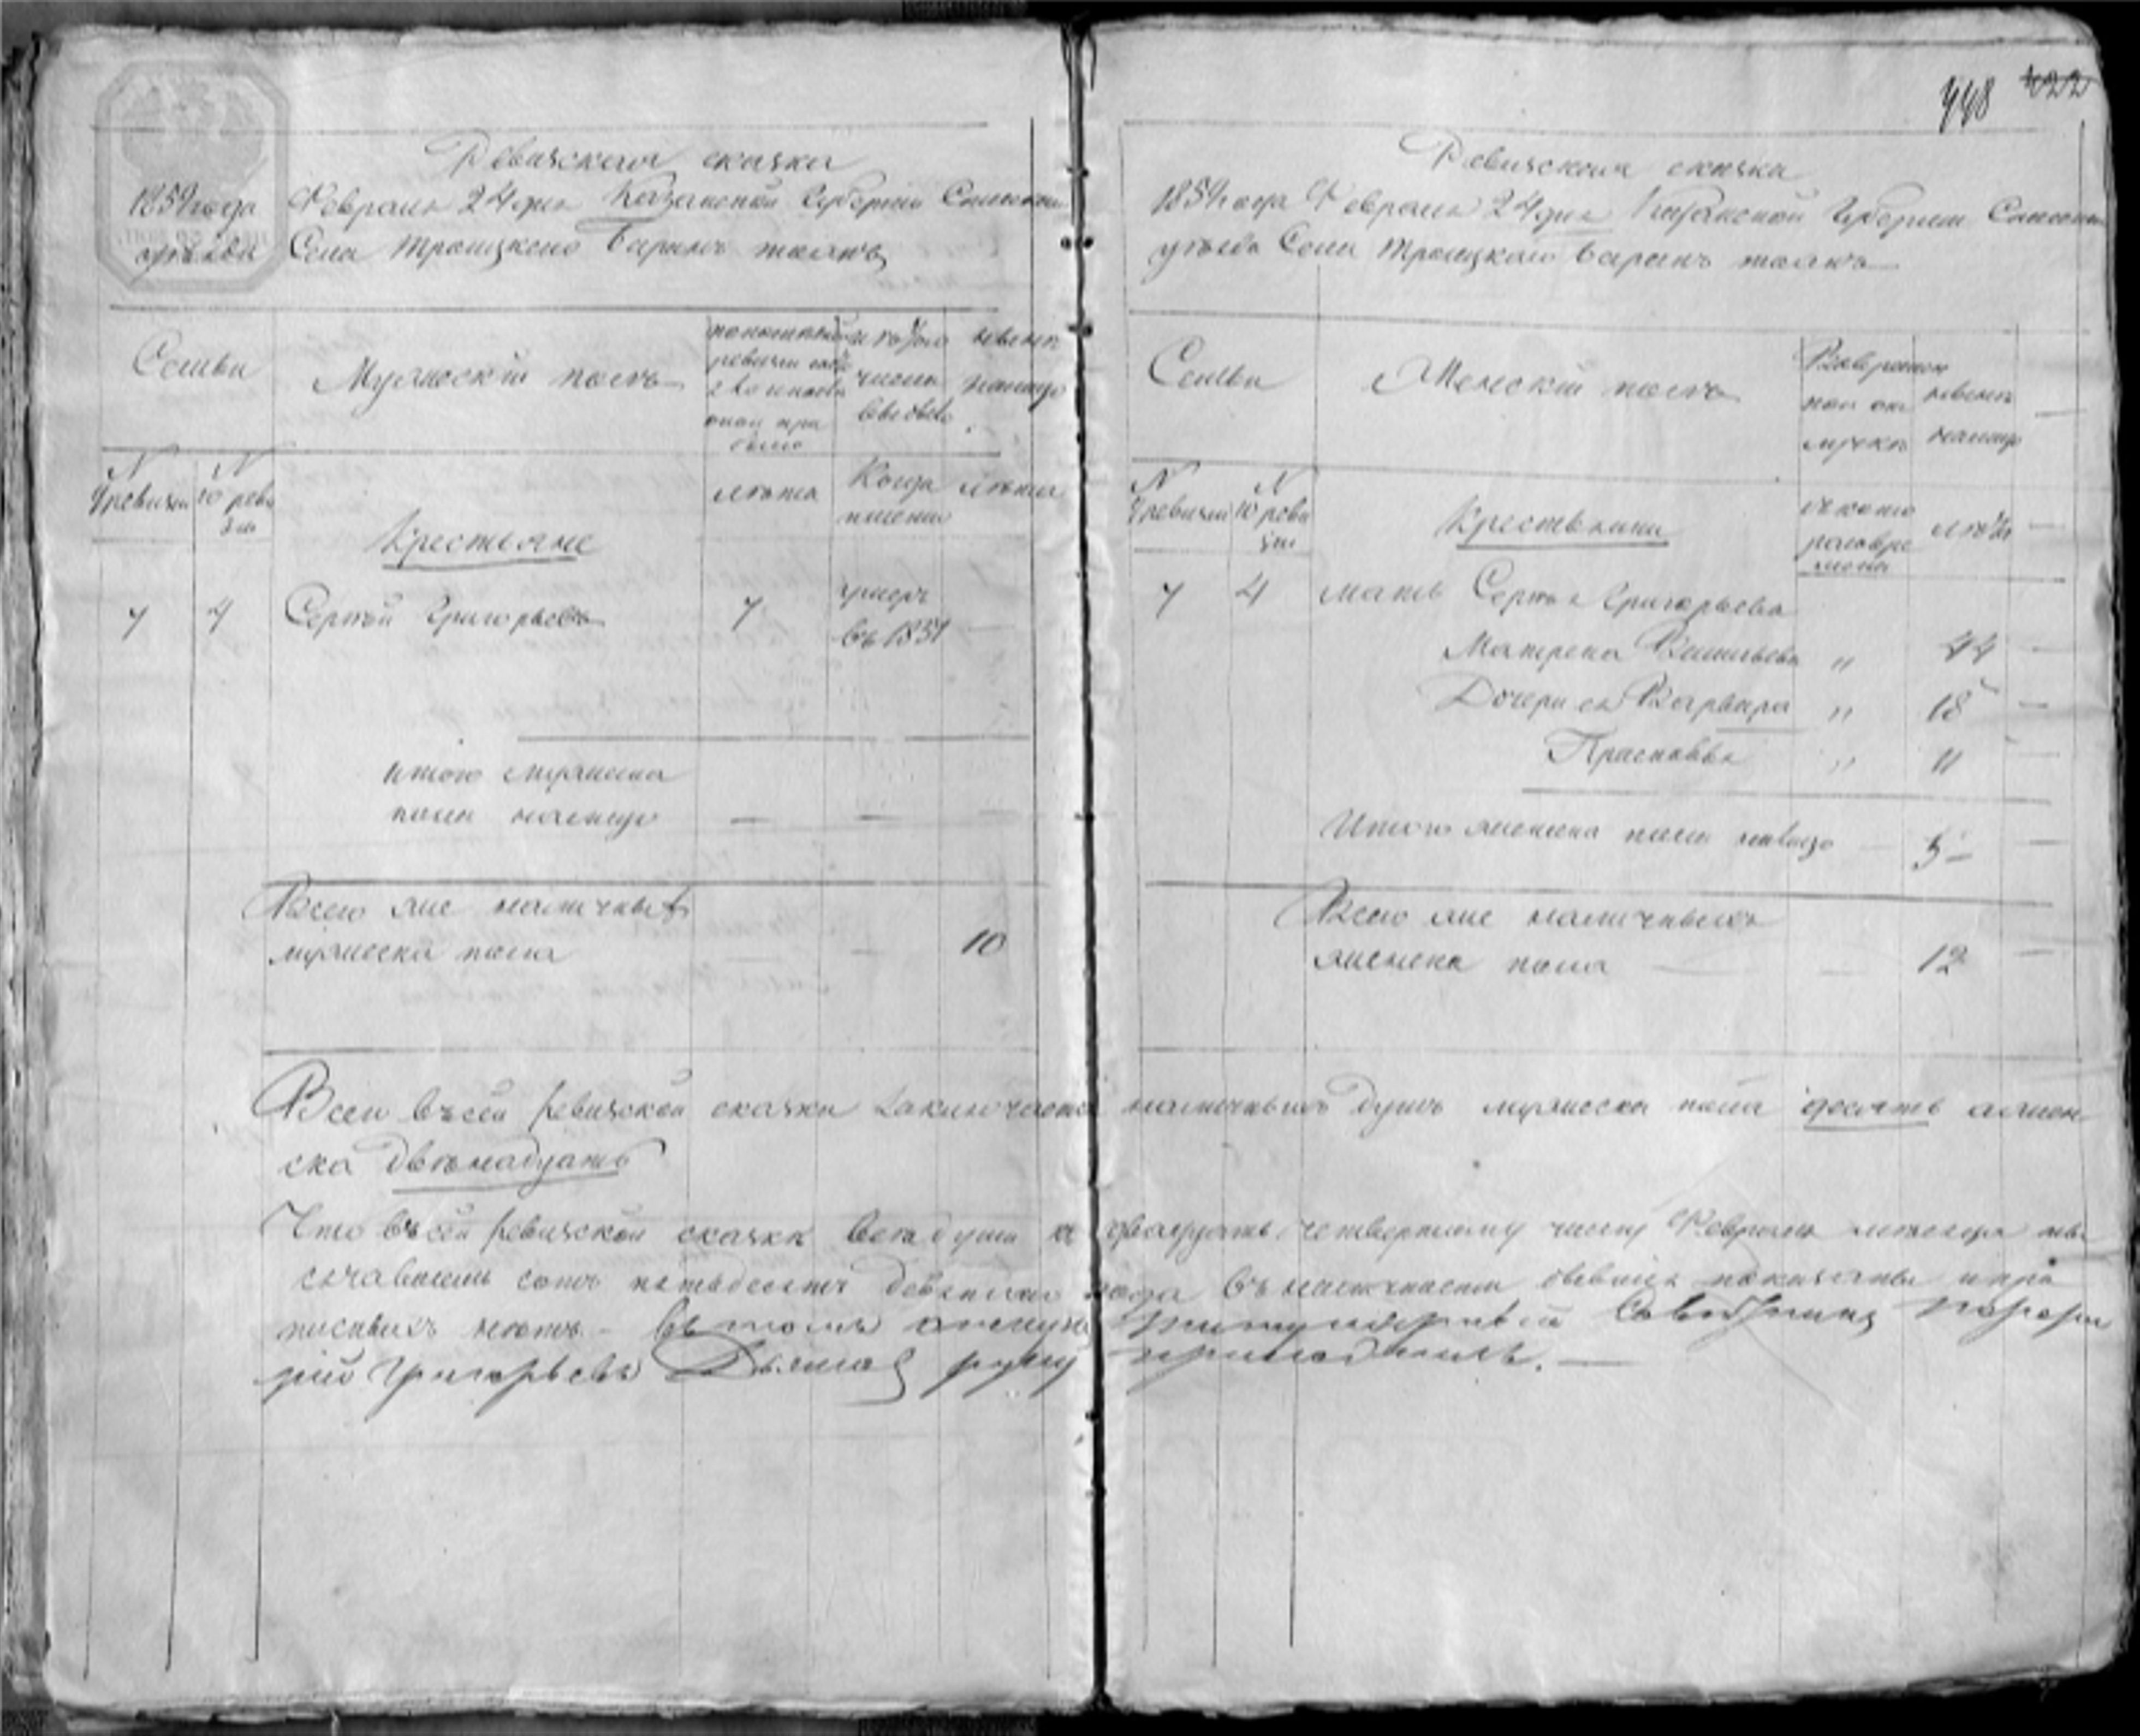 Ревизская сказка
1859 года Февраля 24 дня Казанской Губернии Спасскаго
уѣзда Села Троицкаго Баранъ тожъ
Семьи
Мужескій полъ
по последней ревизіи состояло и послѣ оной прибыло
изъ того числа выбыло
нынѣ налицо
N 9 ревизіи
N 10 ревизіи
лѣта
Когда именно
лѣта
Крестьяне
7 4 Сергѣй Григорьевъ 7 умеръ въ 1851 —
итого мужеска
пола налицо — — —
Всего же наличныхъ
мужеска пола — 10
448 422
Ревизская сказка
1859 года Февраля 24 дня Казанской Губерніи Спасскаго
уѣзда Села Троицкаго Баранъ тожъ
Семьи
Женскій полъ
Во временной отлучкѣ
нынѣ налицо
N 9 ревизіи
N 10 ревизіи
Крестьянки
съ котораго времени
лѣта
7 4 мать Сергѣя Григорьева
Матрена Васильева " 44 —
Дочери ея Варвара " 18 —
Прасковья " 11
Итого женска пола налицо — 3 —
Всего же наличныхъ
женска пола — — 12 —
Всего въ сей ревизской сказки заключается наличныхъ душъ мужеска пола десять а женска
двѣнадцать
Что въ сей ревизской сказкѣ всѣ души къ двадцать четвертому числу Февраля
пятьдесятъ девятаго года въ наличности бывшія показаны и
Титулярный Совѣтникъ
Григорьевъ руку приложилъ. —